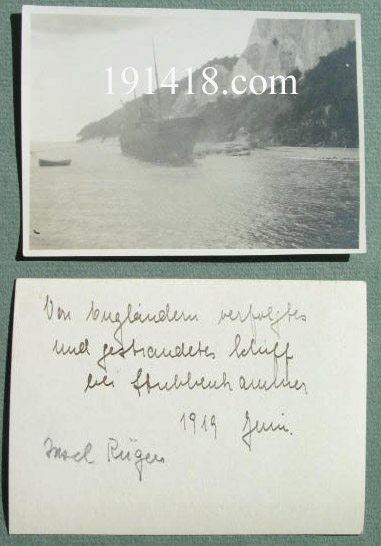 191418.com
Von Engländern verfolgtes
und gestrandetes Schiff
bei Stubbenkammer
1919 Juni.
Insel Rügen